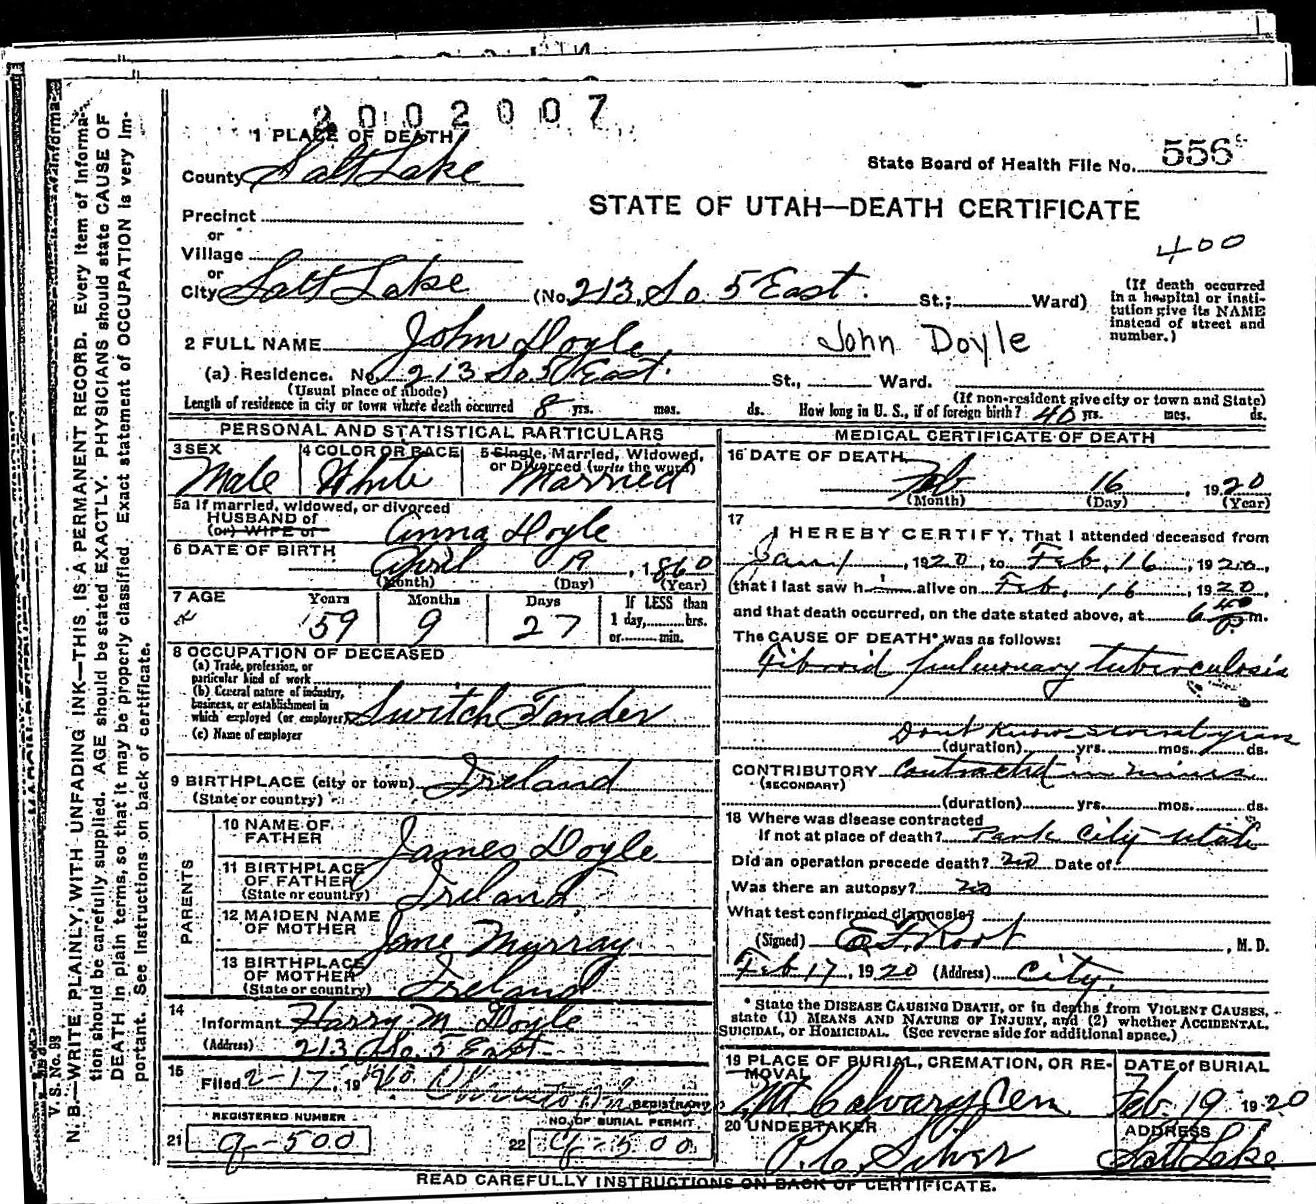 2002007
1 PLACE OF DEATH
County Salt Lake
State Board of Health File No. 556
Precinct
or
STATE OF UTAH—DEATH CERTIFICATE
Village
or
400
City Salt Lake (No. 213 So. 5 East. St.; Ward)
(If death occurred in a hospital or institution give its NAME instead of street and number.)
2 FULL NAME John Doyle John Doyle
(a) Residence. No. 213 So 5 East. St., Ward.
(Usual place of abode) (If non-resident give city or town and State)
Length of residence in city or town where death occurred 8 yrs. mos. ds. How long in U. S., if of foreign birth? 40 yrs. mos. ds.
PERSONAL AND STATISTICAL PARTICULARS
3 SEX Male
4 COLOR OR RACE White
5 Single, Married, Widowed, or Divorced (write the word) Married
5a If married, widowed, or divorced
HUSBAND of
(or) WIFE of Anna Doyle
6 DATE OF BIRTH April 19, 1860
(Month) (Day) (Year)
7 AGE Years Months Days If LESS than
59 9 27 1 day, hrs.
or min.
8 OCCUPATION OF DECEASED
(a) Trade, profession, or particular kind of work
(b) General nature of industry, business, or establishment in which employed (or employer) Switch Tender
(c) Name of employer
9 BIRTHPLACE (city or town) Ireland
(State or country)
PARENTS
10 NAME OF FATHER James Doyle
11 BIRTHPLACE OF FATHER (State or country) Ireland
12 MAIDEN NAME OF MOTHER Jane Murray
13 BIRTHPLACE OF MOTHER (State or country) Ireland
14
Informant Harry M Doyle
(Address) 213 So. 5 East
15
Filed 2-17, 19
REGISTRAR
REGISTERED NUMBER
21 500
NO. OF BURIAL PERMIT
22 500
MEDICAL CERTIFICATE OF DEATH
16 DATE OF DEATH
Feb 16, 1920
(Month) (Day) (Year)
17
I HEREBY CERTIFY, That I attended deceased from
Jany 1, 1920, to Feb. 16, 1920,
(that I last saw h i alive on Feb. 16, 1920,
and that death occurred, on the date stated above, at 6 40 P. m.
The CAUSE OF DEATH* was as follows:
Fibroid pulmonary tuberculosis
Dont know several years
(duration) yrs. mos. ds.
CONTRIBUTORY Contracted in mines
(SECONDARY)
(duration) yrs. mos. ds.
18 Where was disease contracted
If not at place of death? Park City Utah
Did an operation precede death? no Date of
Was there an autopsy? no
What test confirmed diagnosis?
(Signed) E F Root, M. D.
Feb 17, 1920 (Address) City.
* State the DISEASE CAUSING DEATH, or in deaths from VIOLENT CAUSES,
state (1) MEANS AND NATURE OF INJURY, and (2) whether ACCIDENTAL,
SUICIDAL, or HOMICIDAL. (See reverse side for additional space.)
19 PLACE OF BURIAL, CREMATION, OR REMOVAL
Mt Calvary Cem
DATE of BURIAL
Feb. 19 1920
20 UNDERTAKER
ADDRESS
Salt Lake
READ CAREFULLY INSTRUCTIONS ON BACK OF CERTIFICATE.
V. S. No. 98
N. B.—WRITE PLAINLY, WITH UNFADING INK—THIS IS A PERMANENT RECORD. Every item of informa-
tion should be carefully supplied. AGE should be stated EXACTLY. PHYSICIANS should state CAUSE OF
DEATH in plain terms, so that it may be properly classified. Exact statement of OCCUPATION is very im-
portant. See instructions on back of certificate.